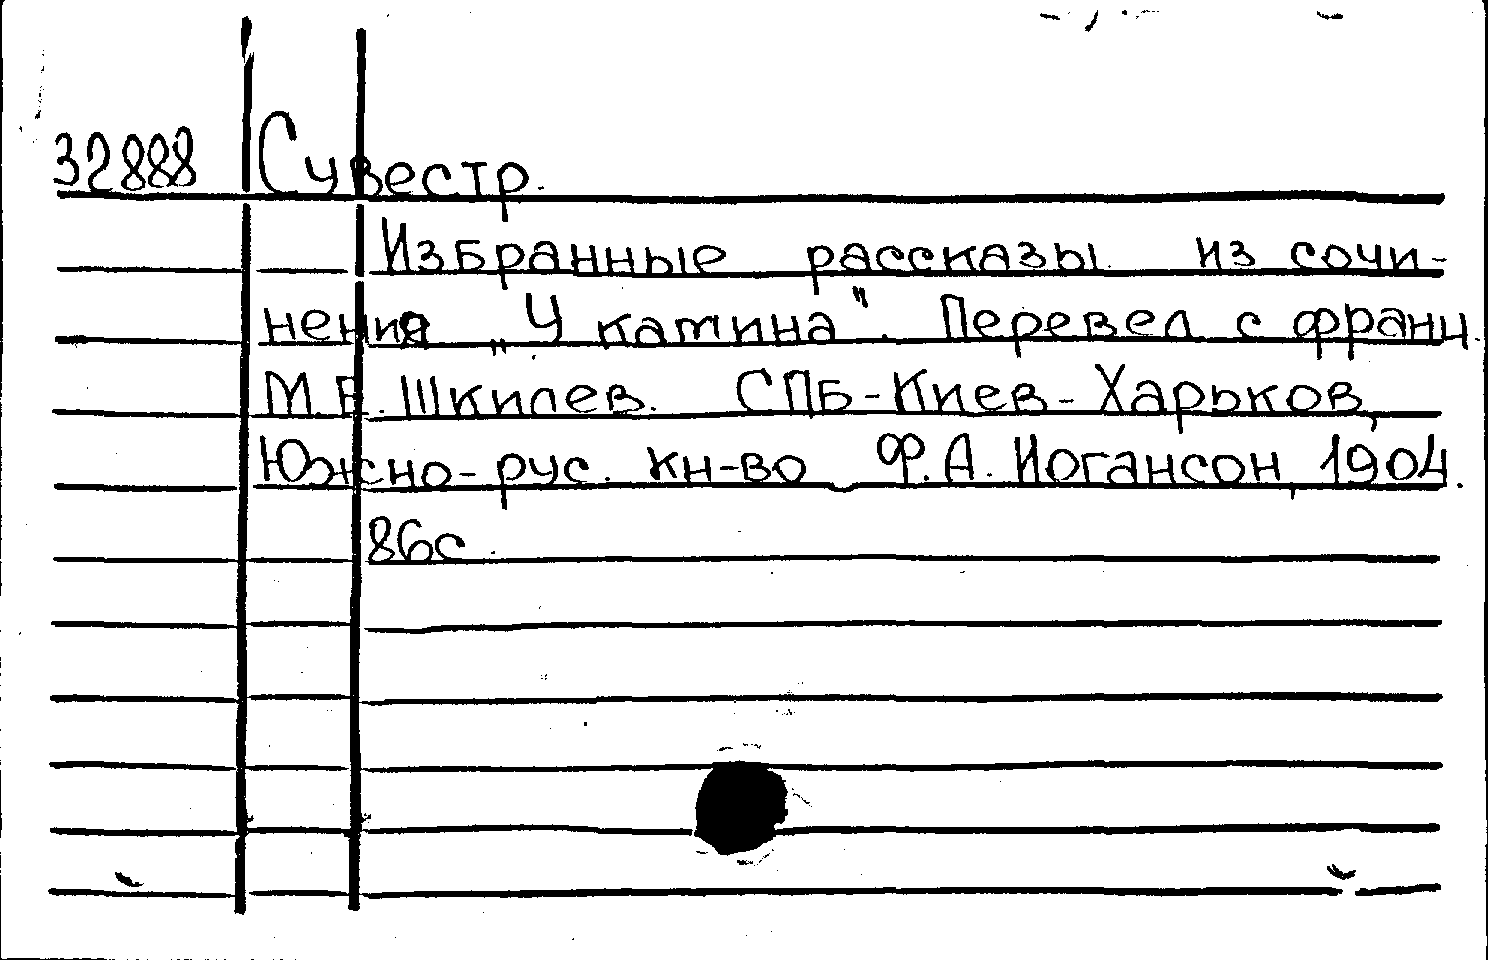 32888 Сувестр.
Избранные рассказы из сочи-
нения „У камина". Перевел с франц.
М.В. Шкилев. СПБ-Киев-Харьков,
Южно-рус. кн-во Ф.А. Иогансон, 1904.
86с.